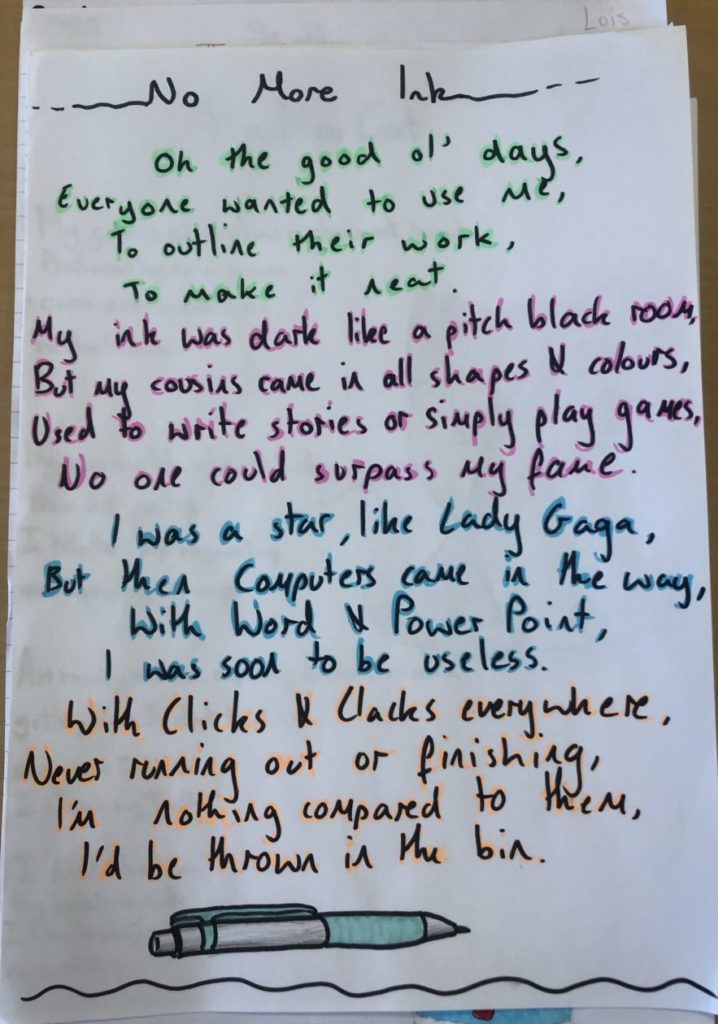 Lois
No More Ink
Oh the good ol' days,
Everyone wanted to use me,
To outline their work,
To make it neat.
My ink was dark like a pitch black room,
But my cousins came in all shapes & colours,
Used to write stories or simply play games,
No one could surpass my fame.
I was a star, like Lady Gaga,
But then Computers came in the way,
With Word & Power Point,
I was soon to be useless.
With Clicks & Clacks everywhere,
Never running out or finishing,
I'm nothing compared to them,
I'd be thrown in the bin.